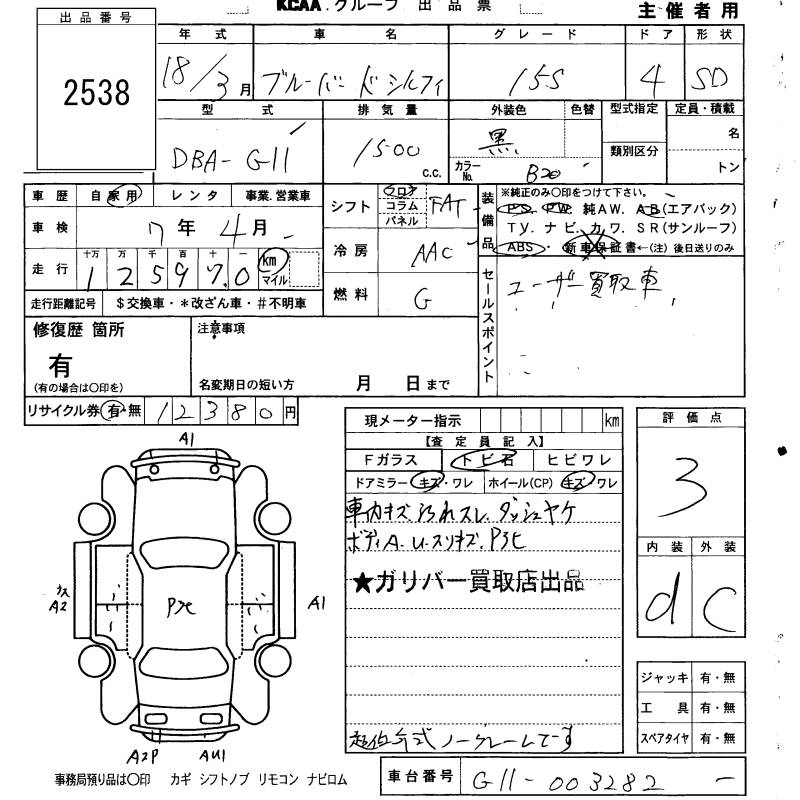 KCAA.グループ 出品票
主催者用
出品番号
2538
年式 車名 グレード ドア 形状
18/3月 ブルーバードシルフィ 15S 4 SD
型式 排気量 外装色 色替 型式指定 定員・積載
DBA-G11 1500 C.C. 黒 名
類別区分
カラーNo. B20 トン
車歴 自家用 レンタ 事業.営業車
シフト フロア コラム パネル FAT
装備品 ※純正のみ〇印をつけて下さい。
PS. PW. 純AW. AB(エアバッグ)
TV. ナビ. カワ. SR(サンルーフ)
ABS・新車保証書←(注)後日送りのみ
車検 7年4月
冷房 AAC
走行 十万 万 千 百 十 一 km マイル
125970
燃料 G
セールスポイント ユーザー買取車
走行距離記号 $交換車・*改ざん車・#不明車
修復歴 箇所
有
(有の場合は〇印を)
注意事項
名変期日の短い方 月 日まで
リサイクル券 有・無 12380円
現メーター指示 km
【査定員記入】
Fガラス トビ石 ヒビワレ
ドアミラー キズ・ワレ ホイール(CP) キズ・ワレ
車内キズ.汚れスレ.ダッシュヤケ
ボディA.U.スリキズ.P3ヒ
★ガリバー買取店出品
評価点
3
内装 外装
d C
A1
A2
A1
A2P AU1
ジャッキ 有・無
工具 有・無
スペアタイヤ 有・無
事務局預り品は〇印 カギ シフトノブ リモコン ナビロム
車台番号 G11-003282 -